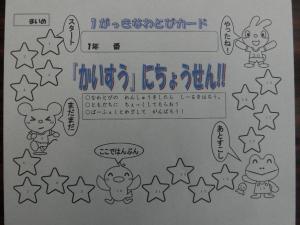 まいめ
1がっきなわとびカード
1年 番
スタート
やったね!
『かいすう』にちょうせん!!
○なわとびの れんしゅうをしたら しーるをはろう。
○ともだちに ちぇっくしてもらおう!
○ぱーふぇくとめざして がんばろう!
まだまだ
あとすこし
ここではんぶん